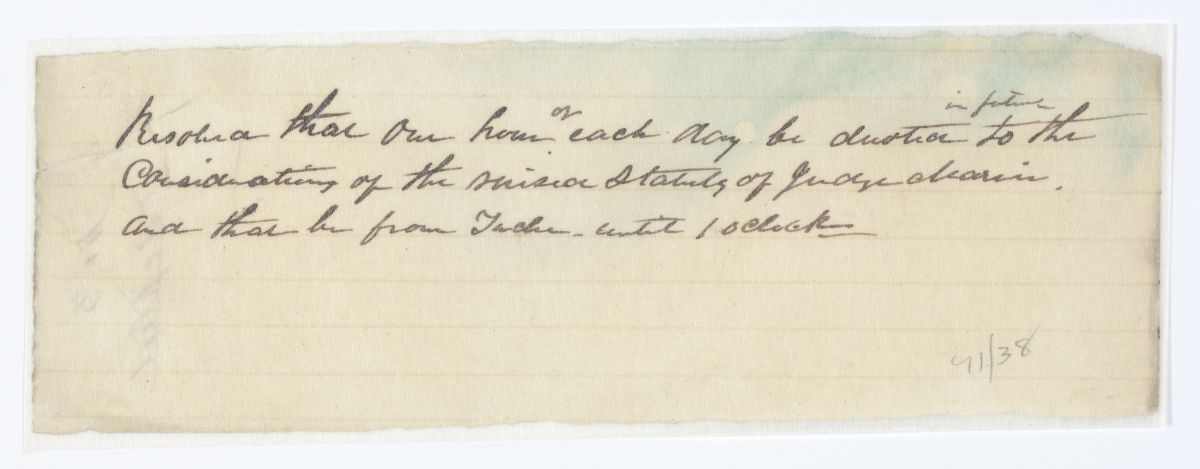 in future
Resolved that One hour of each day be devoted to the
Consideration of the revised Statutes of Judge
and that be from Twelve until 1 oclock
41/38